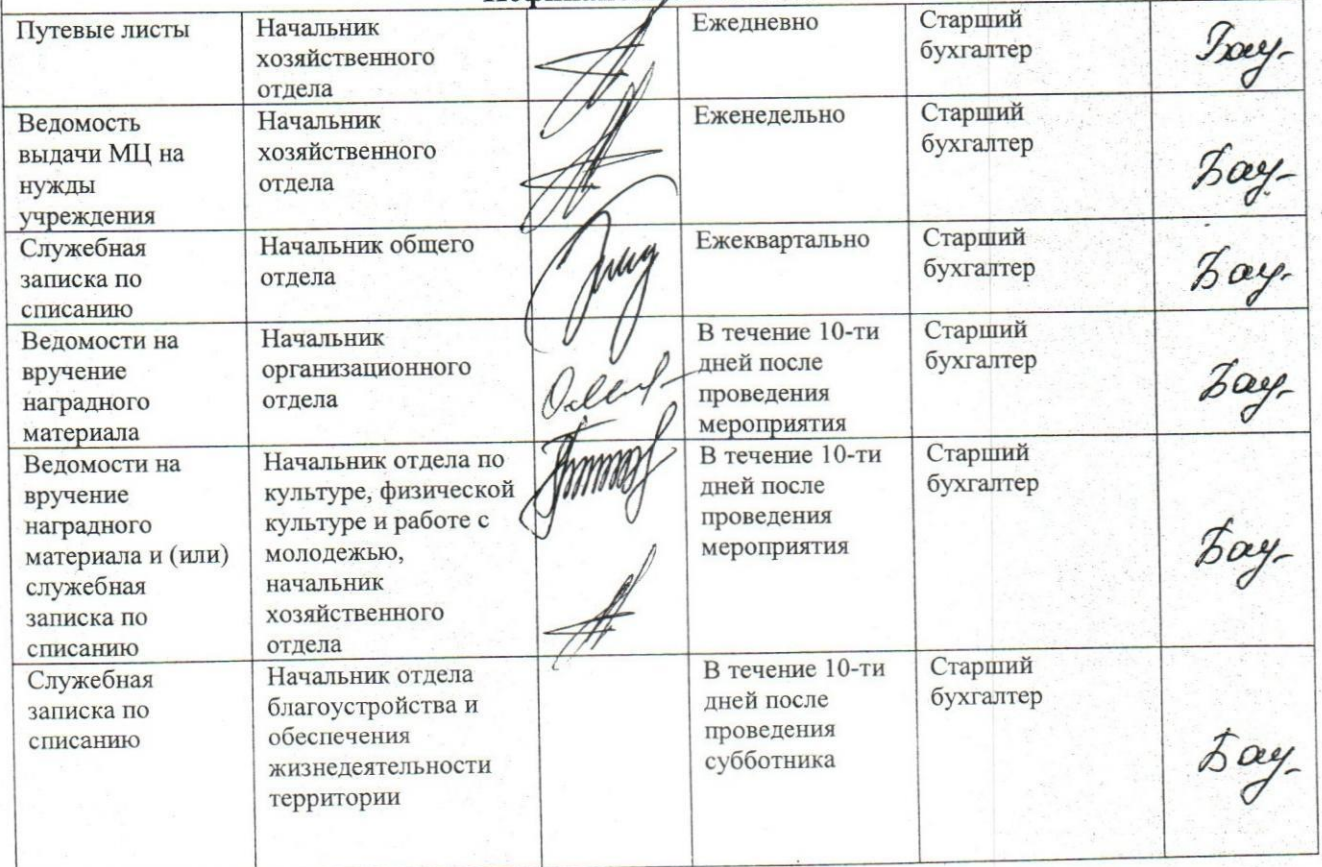 Путевые листы
Начальник
хозяйственного
отдела
Ежедневно
Старший
бухгалтер
Ведомость
выдачи МЦ на
нужды
учреждения
Начальник
хозяйственного
отдела
Еженедельно
Старший
бухгалтер
Служебная
записка по
списанию
Начальник общего
отдела
Ежеквартально
Старший
бухгалтер
Ведомости на
вручение
наградного
материала
Начальник
организационного
отдела
В течение 10-ти
дней после
проведения
мероприятия
Старший
бухгалтер
Ведомости на
вручение
наградного
материала и (или)
служебная
записка по
списанию
Начальник отдела по
культуре, физической
культуре и работе с
молодежью,
начальник
хозяйственного
отдела
В течение 10-ти
дней после
проведения
мероприятия
Старший
бухгалтер
Служебная
записка по
списанию
Начальник отдела
благоустройства и
обеспечения
жизнедеятельности
территории
В течение 10-ти
дней после
проведения
субботника
Старший
бухгалтер